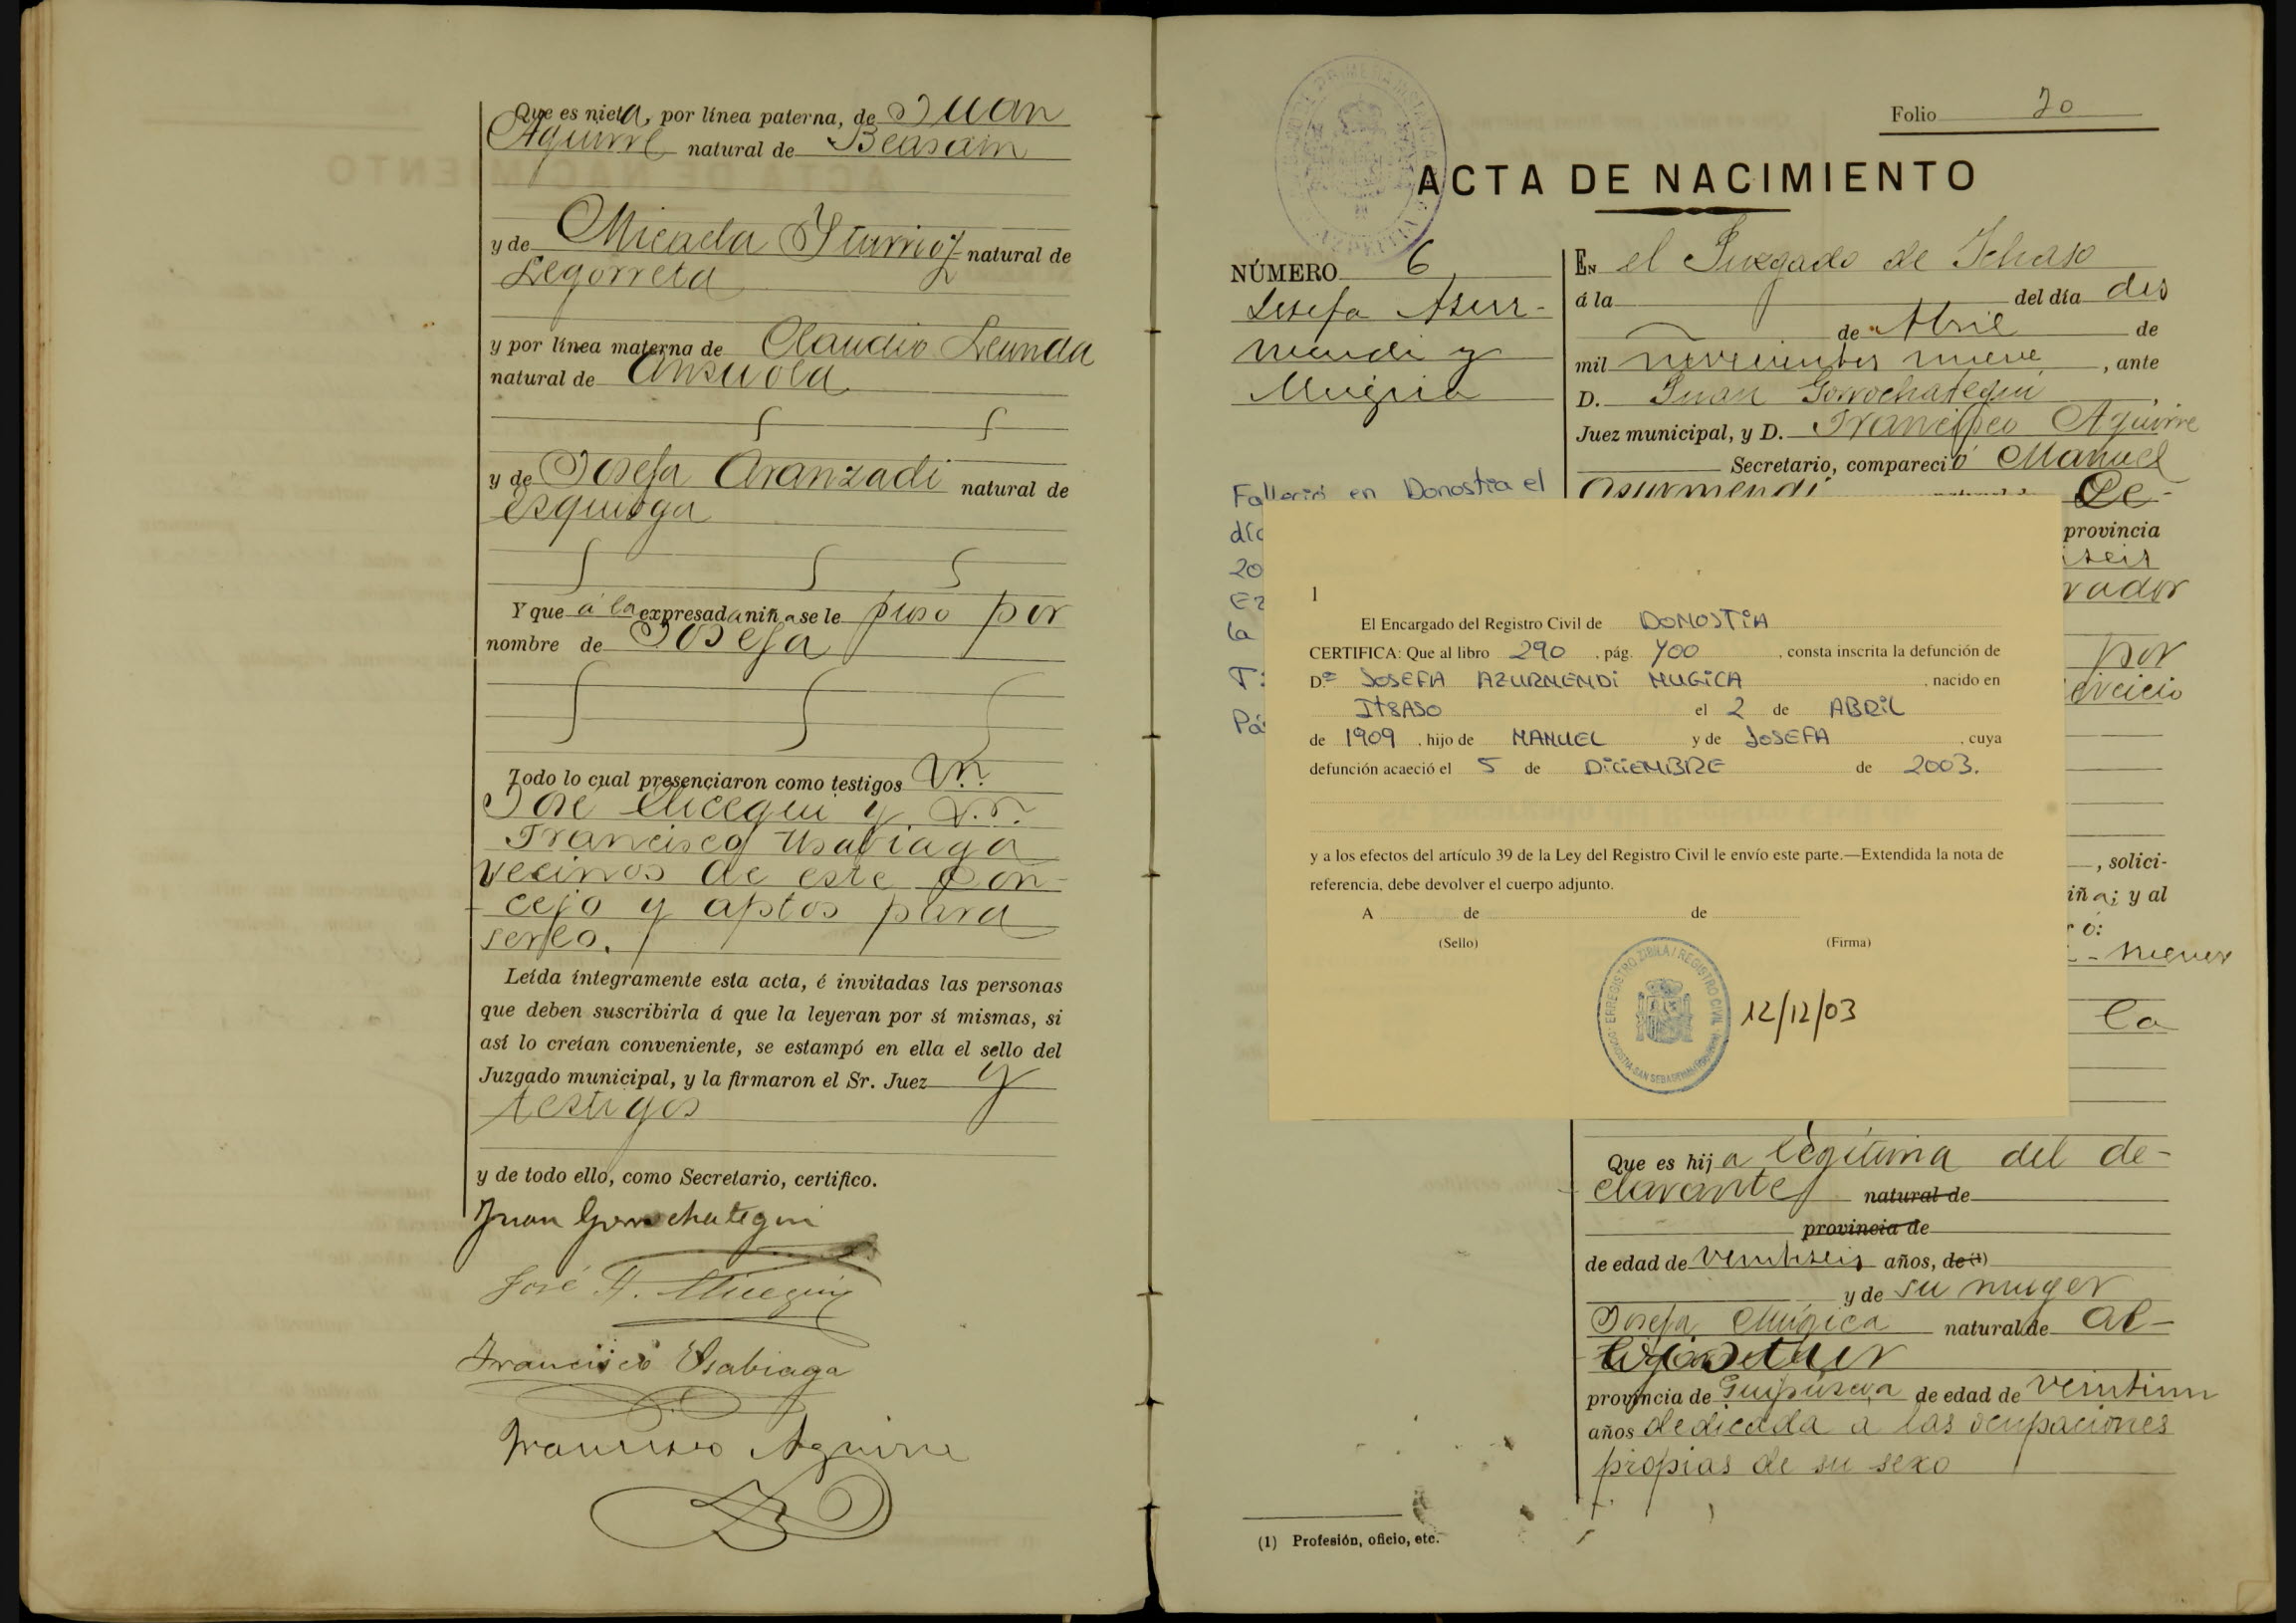 Que es nieta, por línea paterna, de Juan
Aguirre natural de Beasain
y de Micaela Yturrioz natural de
Legorreta
y por línea materna de Claudio Leunda
natural de Anzuola
y de Josefa Aranzadi natural de
Ezquioga
Y que á la expresada niña se le puso por
nombre de Josefa
Todo lo cual presenciaron como testigos Dn.
José Elicegui y D.n.
Francisco Usabiaga
vecinos de este Con-
cejo y aptos para
serlo.
Leída íntegramente esta acta, é invitadas las personas
que deben suscribirla á que la leyeran por sí mismas, si
así lo creían conveniente, se estampó en ella el sello del
Juzgado municipal, y la firmaron el Sr. Juez y
testigos
y de todo ello, como Secretario, certifico.
Juan Gorrochategui
José A. Elicegui
Francisco Usabiaga
Francisco Aguirre
Folio 20
ACTA DE NACIMIENTO
NÚMERO 6
Josefa Asur-
mendi y
Mugica
Falleció en Donostia el
día
20
la
Pá
En el Juzgado de Ichaso
á la del día dos
de Abril de
mil novecientos nueve, ante
D. Juan Gorrochategui,
Juez municipal, y D. Francisco Aguirre
Secretario, compareció Manuel
Asurmendi
provincia
por
, solici-
iña; y al
ó:
nueve
la
1
El Encargado del Registro Civil de DONOSTIA
CERTIFICA: Que al libro 290, pág. 400, consta inscrita la defunción de
D.ª JOSEFA AZURMENDI MUGICA, nacido en
ITSASO el 2 de ABRIL
de 1909, hijo de MANUEL y de JOSEFA, cuya
defunción acaeció el 5 de DICIEMBRE de 2003.
y a los efectos del artículo 39 de la Ley del Registro Civil le envío este parte.—Extendida la nota de
referencia, debe devolver el cuerpo adjunto.
A de de
(Sello) (Firma)
ERREGISTRO ZIBILA / REGISTRO CIVIL
12/12/03
Que es hija legítima del de-
clarante natural de
provincia de
de edad de veintiseis años, de (1)
y de su muger
Josefa Múgica natural de
provincia de Guipúzcoa de edad de veintiun
años dedicada a las ocupaciones
propias de su sexo
(1) Profesión, oficio, etc.